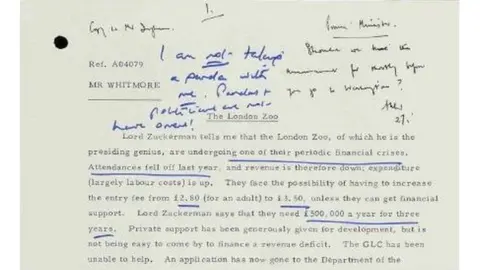 1.
Copy to Mr Ingham
Prime Minister.
I am not taking
a panda with
me. Pandas &
politicians are not
happy omens!
Should we have this
announcement for shortly before
you go to Washington?
Ref. A04079
MR WHITMORE
The London Zoo
Lord Zuckerman tells me that the London Zoo, of which he is the
presiding genius, are undergoing one of their periodic financial crises.
Attendances fell off last year, and revenue is therefore down; expenditure
(largely labour costs) is up. They face the possibility of having to increase
the entry fee from £2.80 (for an adult) to £3.50, unless they can get financial
support. Lord Zuckerman says that they need £500,000 a year for three
years. Private support has been generously given for development, but is
not being easy to come by to finance a revenue deficit. The GLC has been
unable to help. An application has now gone to the Department of the